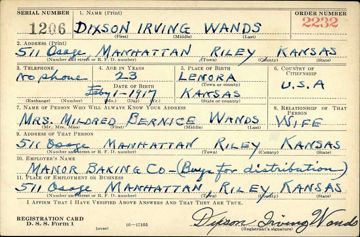 SERIAL NUMBER 1. NAME (Print) ORDER NUMBER
1206 DIXSON IRVING WANDS 2232
(First) (Middle) (Last)
2. ADDRESS (Print)
511 Osage, MANHATTAN RILEY KANSAS
(Number and street or R. F. D. number) (Town) (County) (State)
3. TELEPHONE 4. AGE IN YEARS 5. PLACE OF BIRTH 6. COUNTRY OF CITIZENSHIP
No phone 23 LENORA U.S.A
DATE OF BIRTH (Town or county)
Feby 1-1917 KANSAS
(Exchange) (Number) (Mo.) (Day) (Yr.) (State or country)
7. NAME OF PERSON WHO WILL ALWAYS KNOW YOUR ADDRESS 8. RELATIONSHIP OF THAT PERSON
MRS. MILDRED BERNICE WANDS WIFE
(Mr., Mrs., Miss) (First) (Middle) (Last)
9. ADDRESS OF THAT PERSON
511 Osage MANHATTAN RILEY KANSAS
(Number and street or R. F. D. number) (Town) (County) (State)
10. EMPLOYER'S NAME
MANOR BAKING CO—(Buys for distribution)
11. PLACE OF EMPLOYMENT OR BUSINESS
511 Osage MANHATTAN RILEY KANSAS
(Number and street or R. F. D. number) (Town) (County) (State)
I AFFIRM THAT I HAVE VERIFIED ABOVE ANSWERS AND THAT THEY ARE TRUE.
REGISTRATION CARD
D. S. S. Form 1 (over) Dixson Irving Wands
(Registrant's signature)